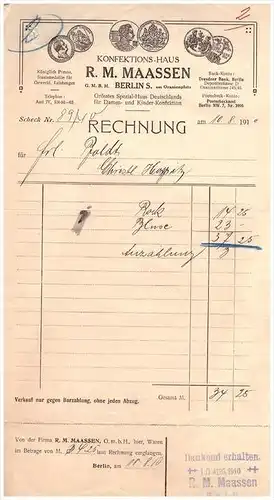 2
KONFEKTIONS-HAUS
R. M. MAASSEN
G. M. B. H. BERLIN S. am Oranienplatz
Grösstes Spezial-Haus Deutschlands
für Damen- und Kinder-Konfektion
Königlich Preuss.
Staatsmedaille für
Gewerbl. Leistungen
Telephon:
Amt IV,
Bank-Konto:
Dresdner Bank, Berlin
Depositenkasse
Oranienstrasse
Postscheck-Konto:
Postscheckamt
Berlin NW 7, Nr.
Scheck Nr.
RECHNUNG
am 10. 8. 1910
für Frl.
Rock 14 25
Bluse 23 -
37 25
Anzahlung 3 -
Gesamt M. 34 25
Verkauf nur gegen Barzahlung, ohne jeden Abzug.
Von der Firma R. M. MAASSEN, G. m. b. H., hier, Waren
im Betrage von M. 34 25 laut Rechnung empfangen.
Berlin, am 11. 8. 10
Dankend erhalten.
AUG. 1910
R. M. Maassen